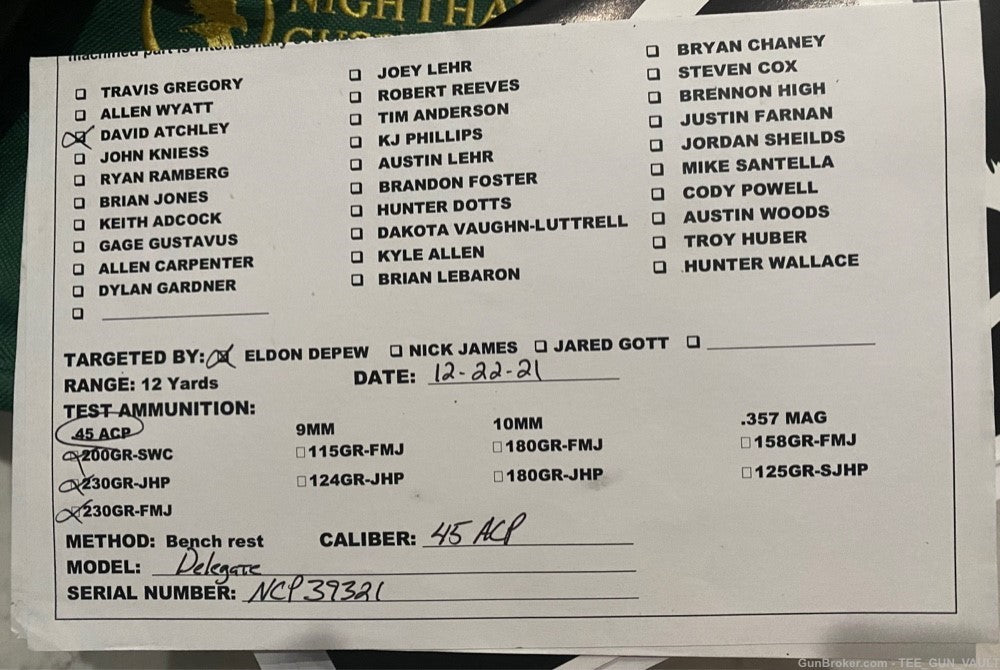 NIGHTHA
machined part is intentionally
TRAVIS GREGORY
ALLEN WYATT
DAVID ATCHLEY
JOHN KNIESS
RYAN RAMBERG
BRIAN JONES
KEITH ADCOCK
GAGE GUSTAVUS
ALLEN CARPENTER
DYLAN GARDNER
JOEY LEHR
ROBERT REEVES
TIM ANDERSON
KJ PHILLIPS
AUSTIN LEHR
BRANDON FOSTER
HUNTER DOTTS
DAKOTA VAUGHN-LUTTRELL
KYLE ALLEN
BRIAN LEBARON
BRYAN CHANEY
STEVEN COX
BRENNON HIGH
JUSTIN FARNAN
JORDAN SHEILDS
MIKE SANTELLA
CODY POWELL
AUSTIN WOODS
TROY HUBER
HUNTER WALLACE
TARGETED BY: ELDON DEPEW NICK JAMES JARED GOTT
RANGE: 12 Yards DATE: 12-22-21
TEST AMMUNITION:
.45 ACP 9MM 10MM .357 MAG
200GR-SWC 115GR-FMJ 180GR-FMJ 158GR-FMJ
230GR-JHP 124GR-JHP 180GR-JHP 125GR-SJHP
230GR-FMJ
METHOD: Bench rest CALIBER: 45 ACP
MODEL: Delegate
SERIAL NUMBER: NCP39321
GunBroker.com - TEE_GUN_VAU